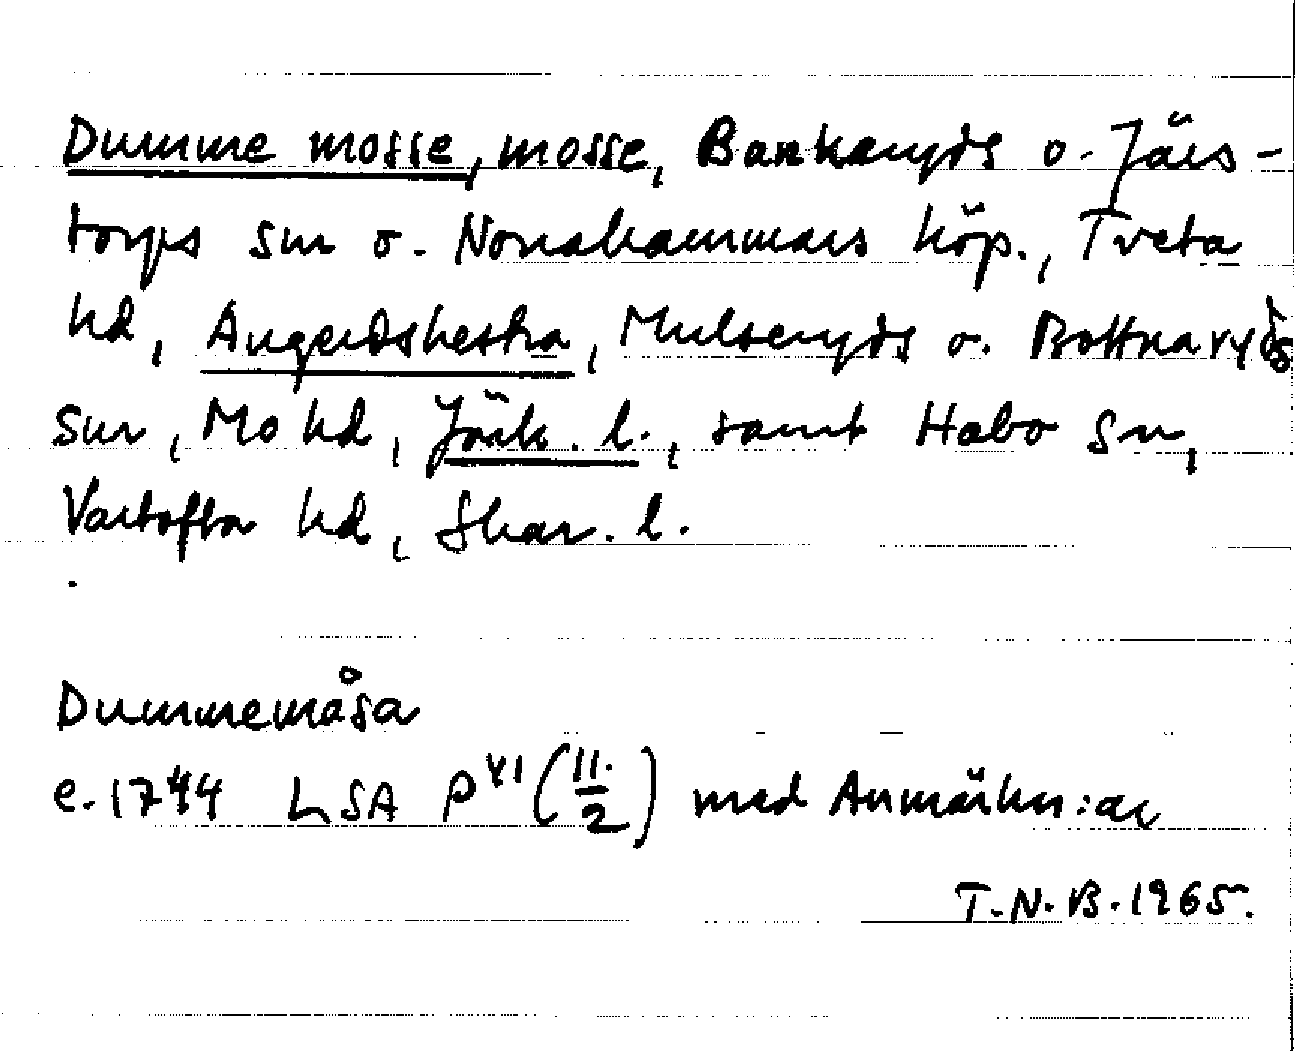 Dumme mosse, mosse, Bankeryds o. Järs-
torps snr o. Norrahammars köp., Tveta
hd, Angerdshestra, Mulseryds o. Bottnaryds
snr, Mo hd, Jönk. l., samt Habo sn,
Vartofta hd, Skar. l.
Dummemåsa
e. 1744 LSA P VI (11./2) med Anmärkn:ar
T.N.B. 1965.